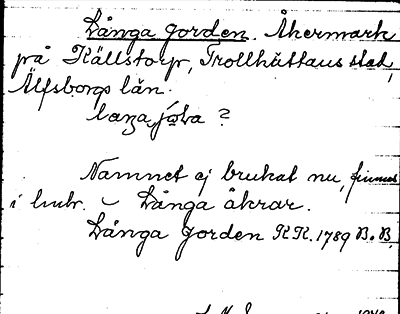 Långa Jorden. Åkermark
på Källstorp, Trollhättans stad,
Älfsborgs län.
laŋa jo̊ɽa ?
Namnet ej brukat nu, finnes
i hmbr. Långa åkrar.
Långa Jorden K.K. 1789 B.B.